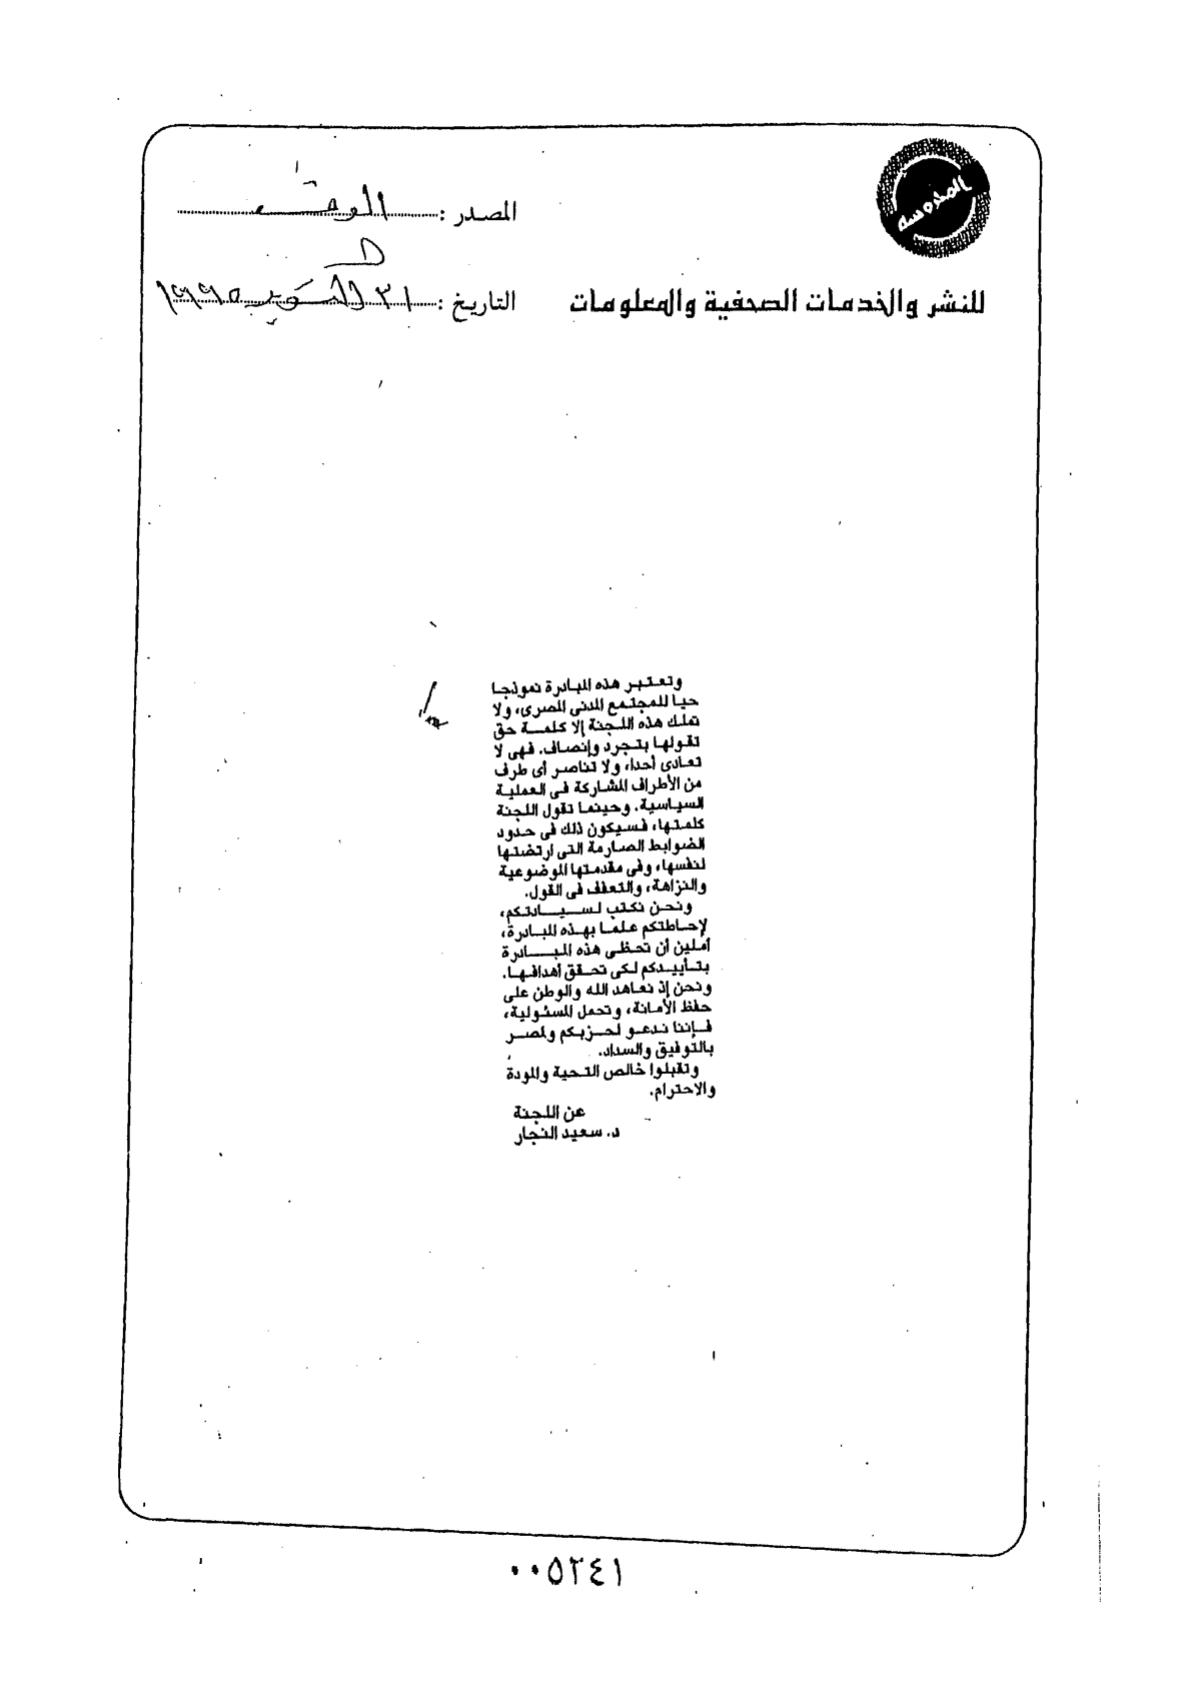 المحروسة
المصدر : الوفد
للنشر والخدمات الصحفية والمعلومات
التاريخ : ٣١ اكتوبر ١٩٩٥
وتعتبر هذه المبادرة نموذجا
حيا للمجتمع المدنى المصرى، ولا
تملك هذه اللجنة إلا كلمة حق
تقولها بتجرد وإنصاف. فهى لا
تعادى أحدا، ولا تناصر أى طرف
من الأطراف المشاركة فى العملية
السياسية. وحينما تقول اللجنة
كلمتها، فسيكون ذلك فى حدود
الضوابط الصارمة التى ارتضتها
لنفسها، وفى مقدمتها الموضوعية
والنزاهة، والتعفف فى القول.
ونحن نكتب لسيادتكم،
لإحاطتكم علما بهذه المبادرة،
أملين أن تحظى هذه المبادرة
بتأييدكم لكى تحقق أهدافها.
ونحن إذ نعاهد الله والوطن على
حفظ الأمانة، وتحمل المسئولية،
فإننا ندعو لحزبكم ولمصر
بالتوفيق والسداد.
وتقبلوا خالص التحية والمودة
والاحترام.
عن اللجنة
د. سعيد النجار
٠٠٥٢٤١